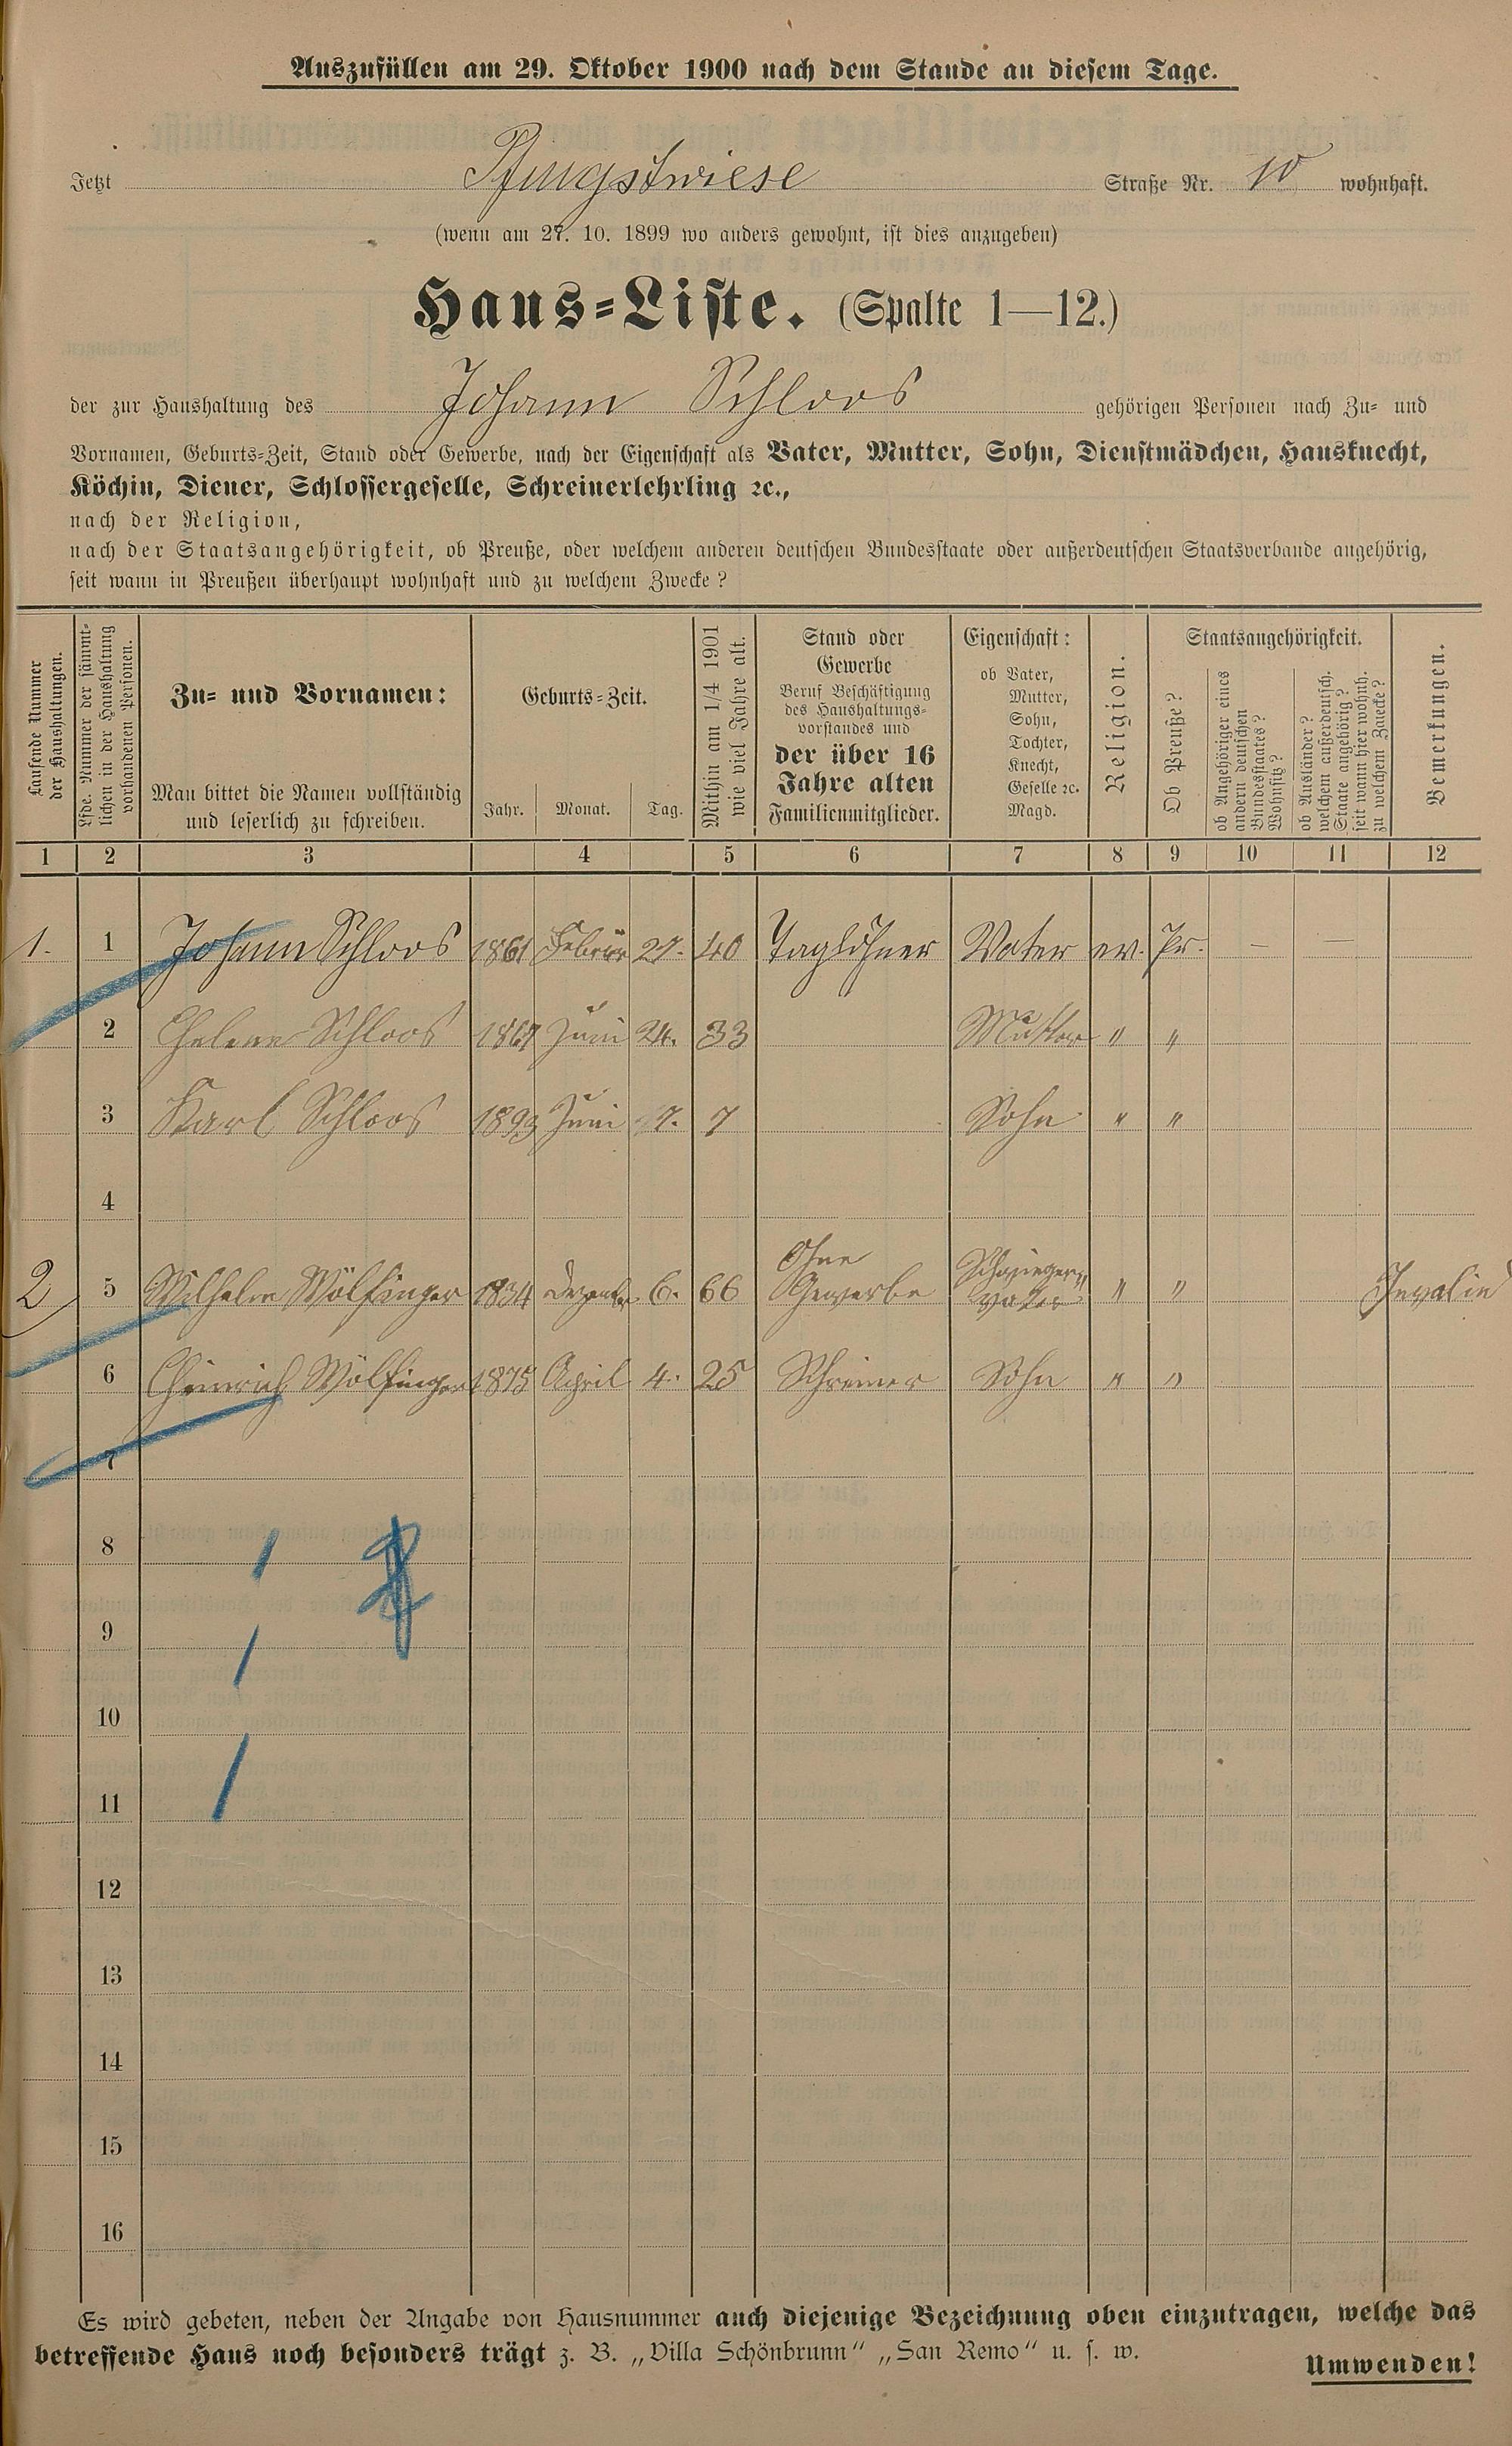 Auszufüllen am 29. Oktober 1900 nach dem Stande an diesem Tage.
Jetzt Pfingstwiese Straße Nr. 10 wohnhaft.
(wenn am 27. 10. 1899 wo anders gewohnt, ist dies anzugeben)
Haus-Liste. (Spalte 1—12.)
der zur Haushaltung des Johann Schloos gehörigen Personen nach Zu- und
Vornamen, Geburts-Zeit, Stand oder Gewerbe, nach der Eigenschaft als Vater, Mutter, Sohn, Dienstmädchen, Hausknecht,
Köchin, Diener, Schlossergeselle, Schreinerlehrling ꝛc.,
nach der Religion,
nach der Staatsangehörigkeit, ob Preuße, oder welchem anderen deutschen Bundesstaate oder außerdeutschen Staatsverbande angehörig,
seit wann in Preußen überhaupt wohnhaft und zu welchem Zwecke?
Laufende Nummer
der Haushaltungen.
Lfde. Nummer der sämmt-
lichen in der Haushaltung
vorhandenen Personen.
Zu- und Vornamen:
Man bittet die Namen vollständig
und leserlich zu schreiben.
Geburts-Zeit.
Jahr. Monat. Tag.
Mithin am 1/4 1901
wie viel Jahre alt.
Stand oder
Gewerbe
Beruf Beschäftigung
des Haushaltungs-
vorstandes und
der über 16
Jahre alten
Familienmitglieder.
Eigenschaft:
ob Vater,
Mutter,
Sohn,
Tochter,
Knecht,
Geselle ꝛc.
Magd.
Religion.
Staatsangehörigkeit.
Ob Preuße?
ob Angehöriger eines
andern deutschen
Bundesstaates?
Wohnsitz?
ob Ausländer?
welchem außerdeutsch.
Staate angehörig?
seit wann hier wohnh.
zu welchem Zwecke?
Bemerkungen.
1 2 3 4 5 6 7 8 9 10 11 12
1. 1 Johann Schloos 1861 Februar 27. 40 Taglöhner Vater ev. Pr. — —
2 Helene Schloos 1867 Juni 24. 33 Mutter " "
3 Karl Schloos 1893 Juni 7. 7 Sohn " "
4
2 5 Wilhelm Wölfinger 1834 Dezember 6. 66 Ohne Gewerbe Schwiegervater " " Invalid
6 Heinrich Wölfinger 1875 April 4. 25 Schreiner Sohn " "
7
8
9
10
11
12
13
14
15
16
Es wird gebeten, neben der Angabe von Hausnummer auch diejenige Bezeichnung oben einzutragen, welche das
betreffende Haus noch besonders trägt z. B. „Villa Schönbrunn“ „San Remo“ u. s. w.
Umwenden!